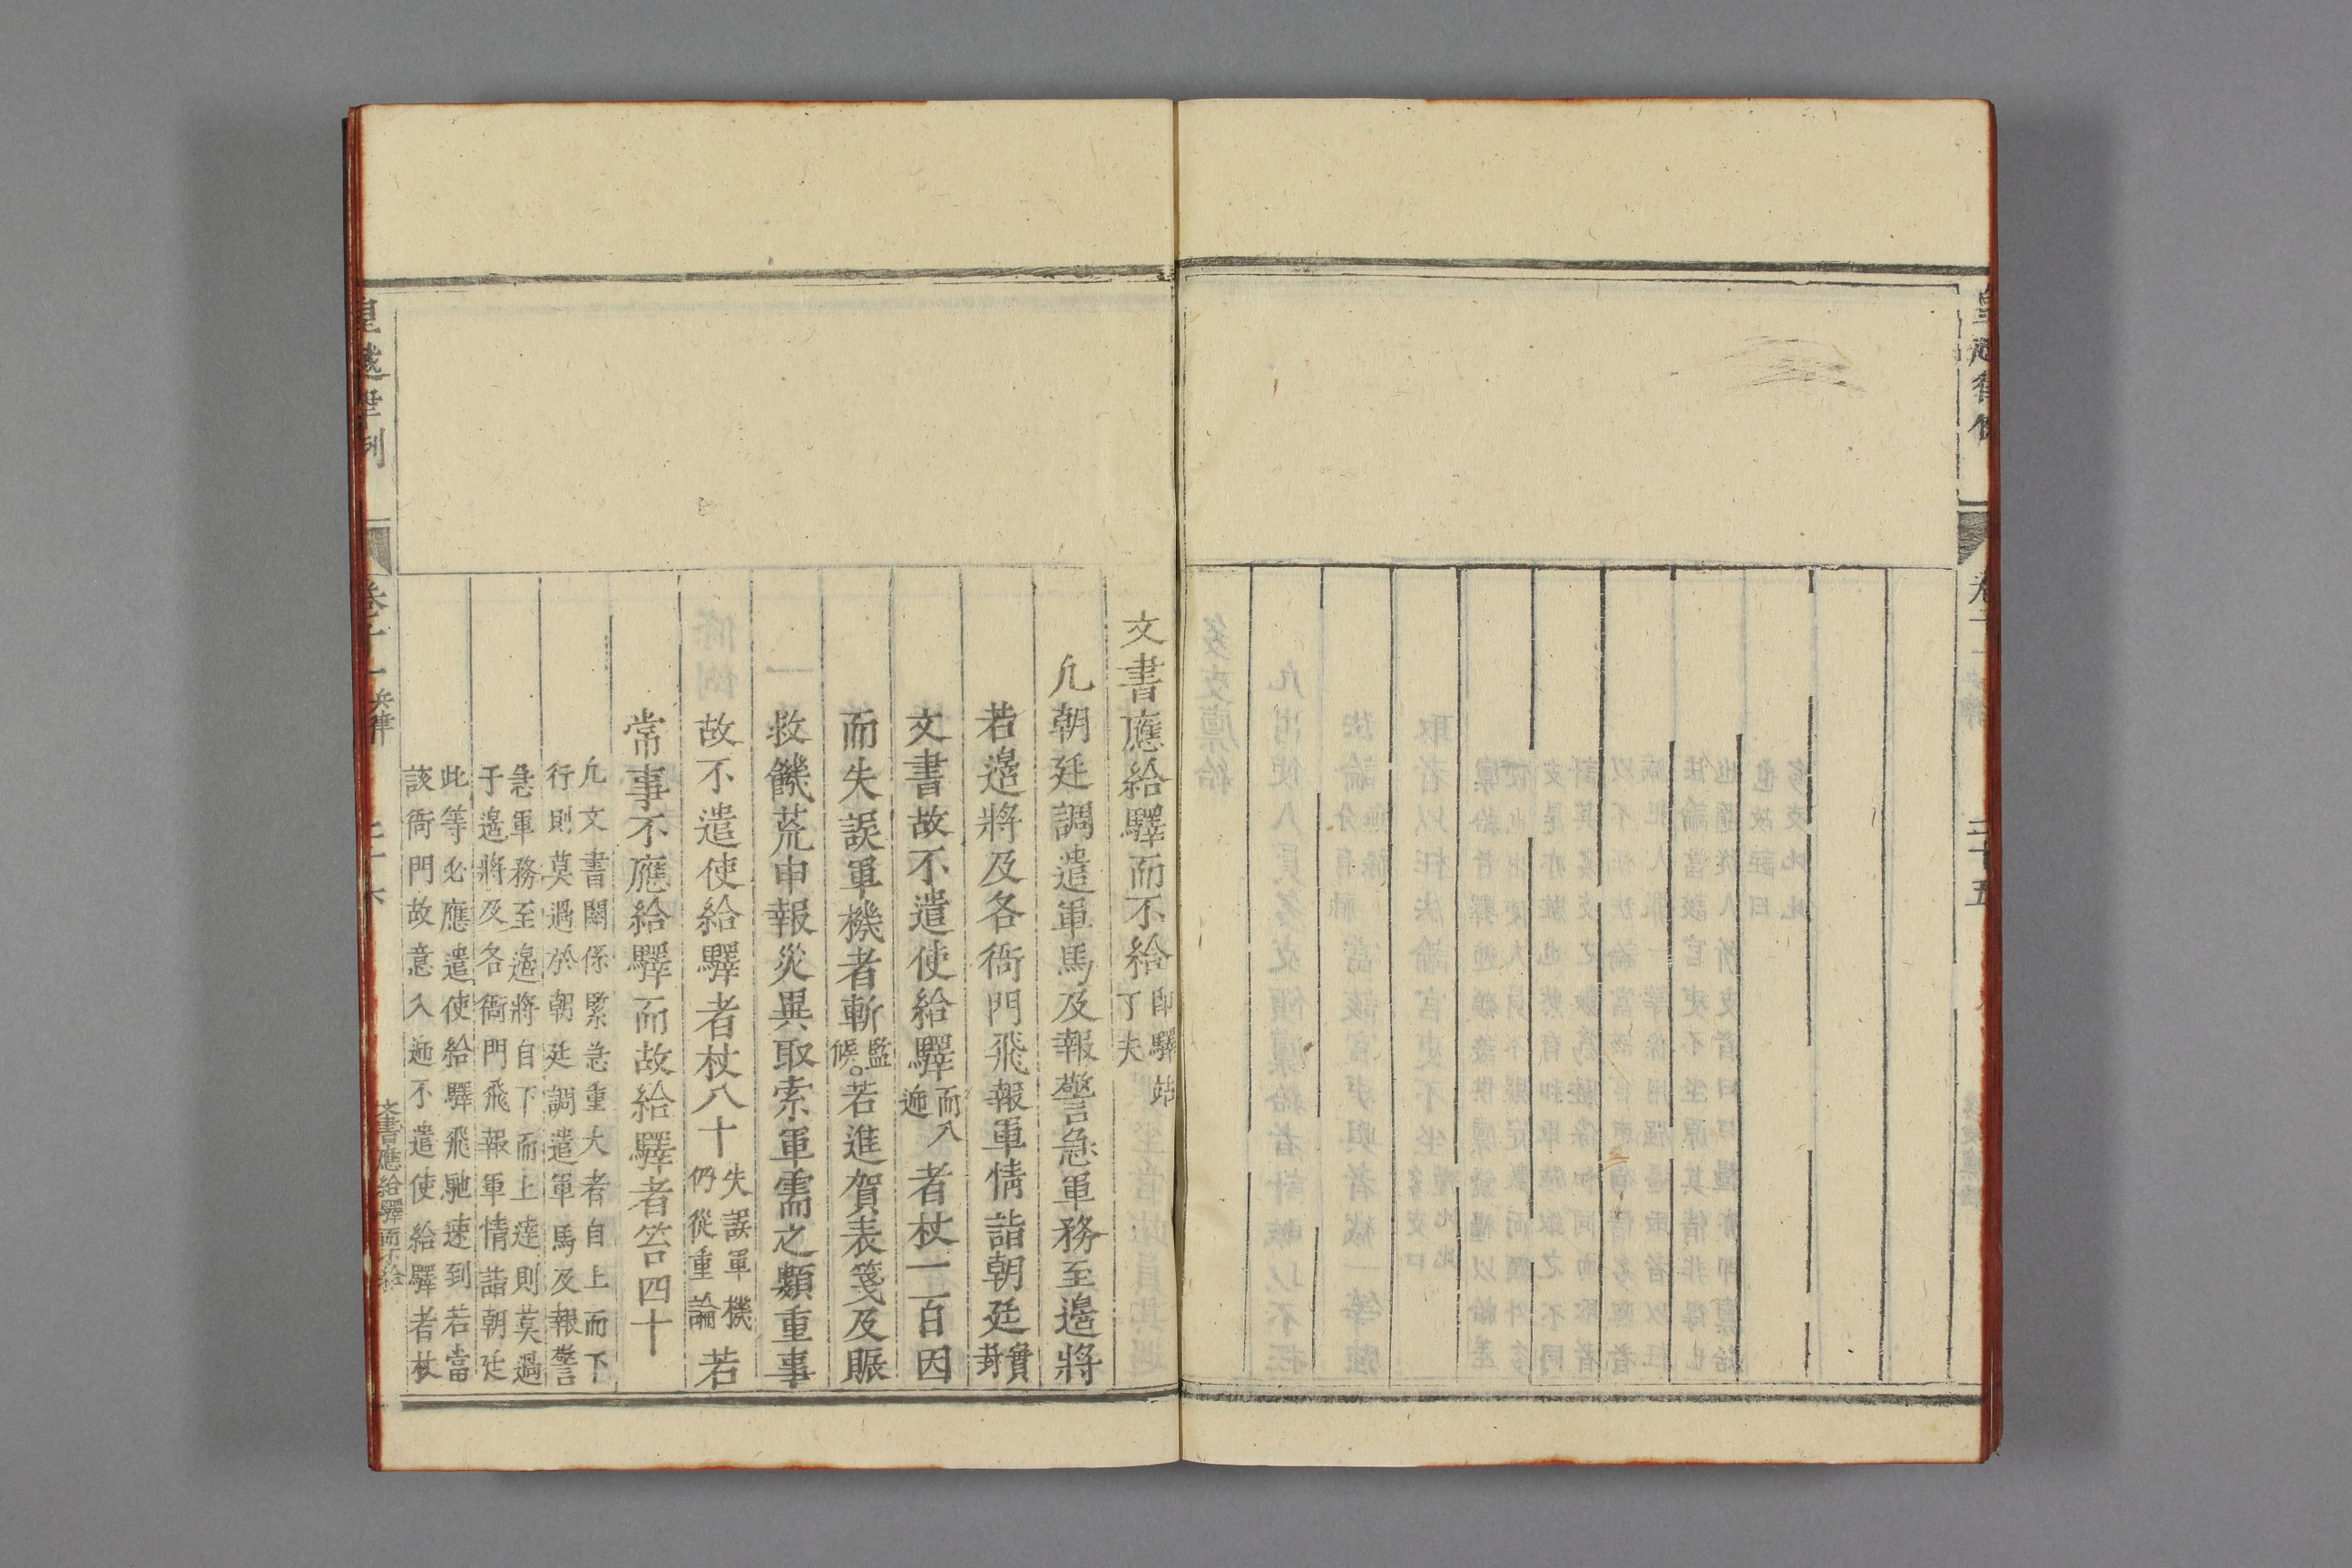 二十五
文書應給驛而不給 即驛站丁夫
凢朝廷調遣軍馬及報警急軍務至邉將
若邉將及各衙門飛報軍情詣朝廷實封
文書故不遣使給驛而入逓者杖一百因
而失誤軍機者斬監候○若進賀表箋及賑
救饑荒申報災異取索軍需之類重事
故不遣使給驛者杖八十失誤軍機仍從重論若
常事不應給驛而故給驛者笞四十
凢文書關係緊急重大者自上而下
行則莫過於朝廷調遣軍馬及報警
急軍務至邉將自下而上達則莫過
于邉將及各衙門飛報軍情詣朝廷
此等必應遣使給驛飛馳速到若當
該衙門故意入逓不遣使給驛者杖
皇越律例 卷十一 兵律 二十六 文書應給驛而不給